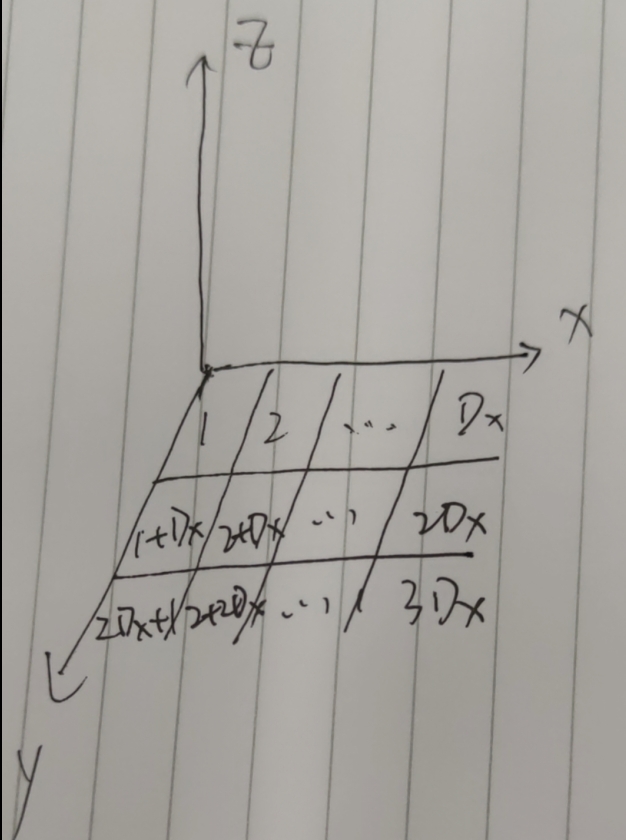 Z
x
1 2 ... Dx
1+Dx 2+Dx ... 2Dx
2Dx+1 2+2Dx ... 3Dx
y